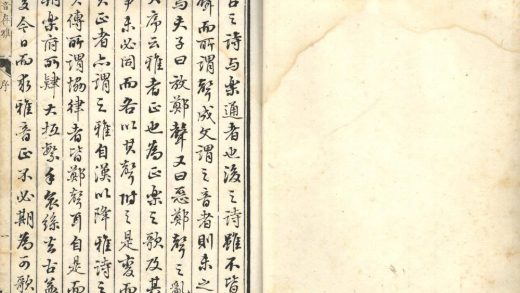 古之詩与樂通者也後之詩雖不皆
解而所謂聲成文謂之音者則未之
焉夫子曰放鄭聲又曰惡鄭聲之亂
大序云雅者正也為正樂之歌及其
事未必同而各以其聲附之是變而
正者亦謂之雅自漢以降雅詩之
傳所謂協律者皆鄭聲耳自是而
樂府所肄大抵繁手哀絲去古益
今日而求雅音正不必期為可歌
序
一